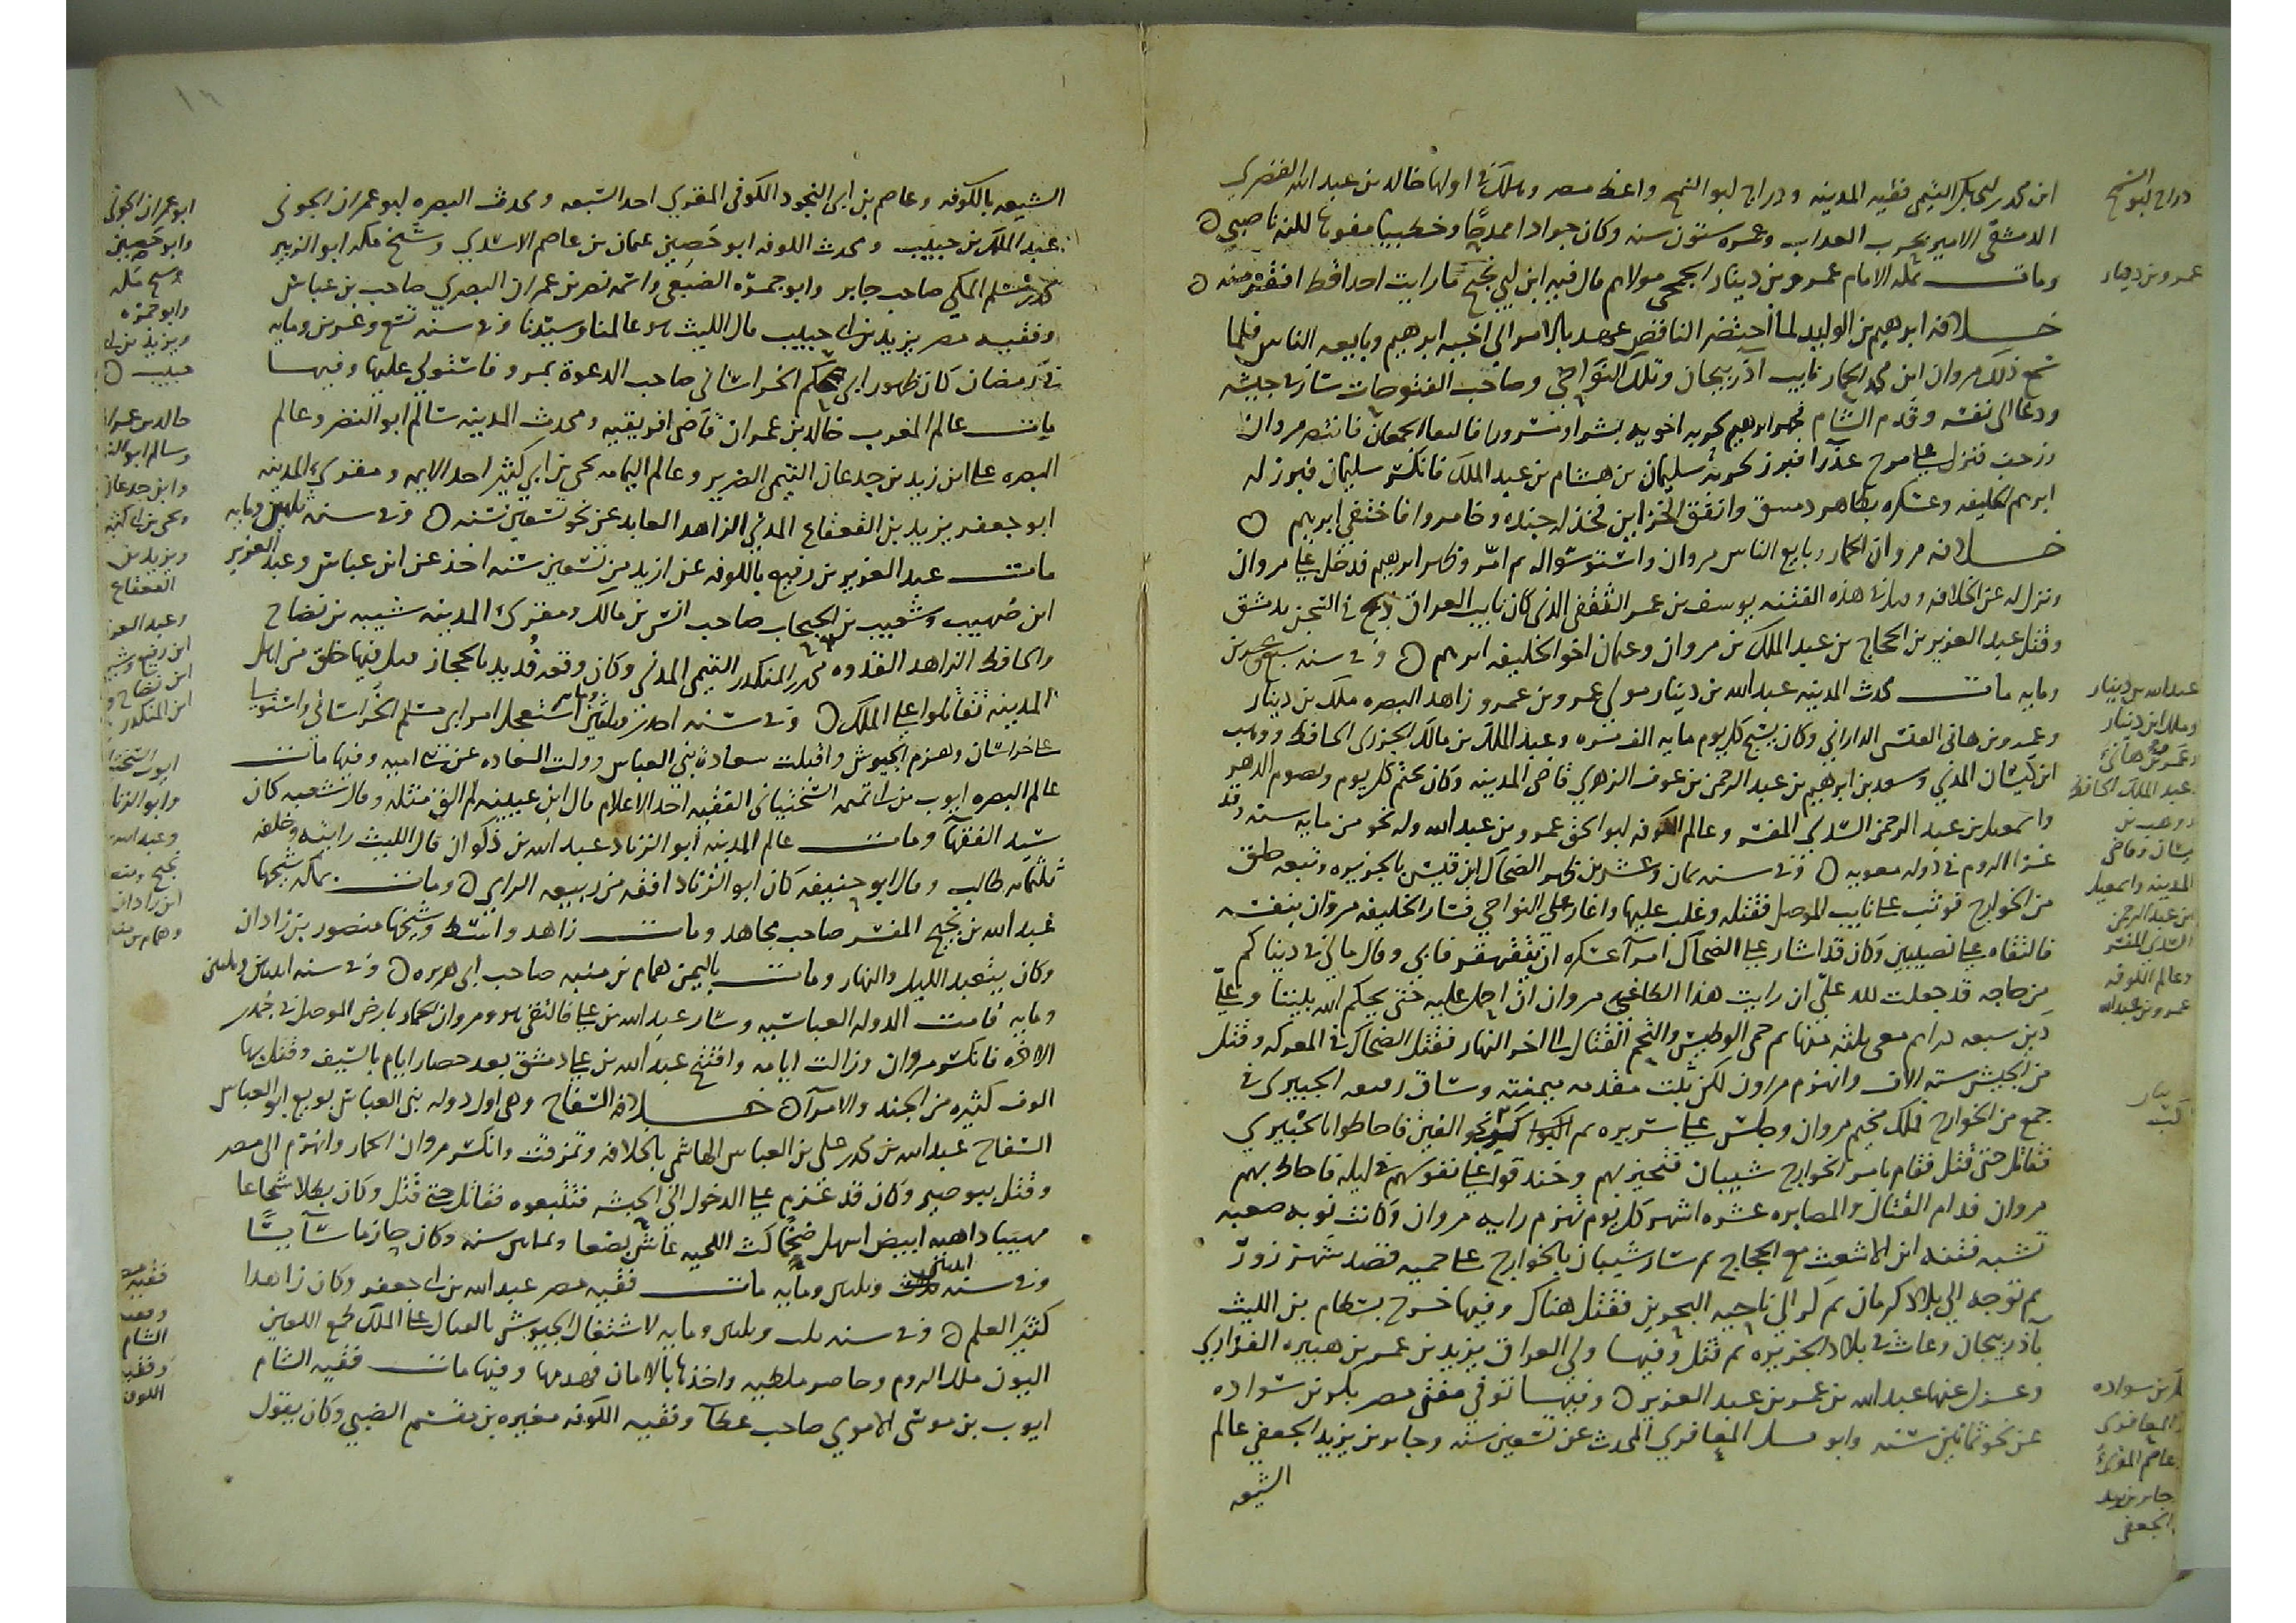 ابن محمد بن ابي بكر التيمي فقيه المدينه ودراج ابو السمح واعظ مصر وهلك في اولها خالد بن عبد الله القسري
الدمشقي الامير تحت العذاب وعمره ستون سنه وكان جوادا ممدحا وخطيبا مفوها لكنه ناصبي
ومات بمكه الامام عمرو بن دينار الجمحي مولاهم قال فيه ابن ابي نجيح ما رايت احدا قط افقه منه
خلافه ابرهيم بن الوليد لما احتضر الناقص عهد بالامر الى اخيه ابرهيم وبايعه الناس فلما
سمع ذلك مروان ابن محمد الحمار نايب اذربيجان وتلك النواحي وصاحب الفتوحات سار في جيشه
ودعا الى نفسه وقدم الشام فجهز ابرهيم لحربه اخويه بشرا ومسرورا فالتقا الجمعان فانتصر مروان
وزحف فنزل على مرج عذرا فبرز لحربه سليمان بن هشام بن عبد الملك فانكسر سليمان فبرز له
ابرهيم الخليفه وعسكره بظاهر دمشق وانفق الخزاين فخذله جنده وخامروا فاختفى ابرهيم
خلافه مروان الحمار وبايع الناس مروان واستوسق له الامر وظهر ابرهيم فدخل على مروان
ونزل له عن الخلافه وقتل في هذه الفتنه يوسف بن عمر الثقفي الذي كان نايب العراق ذبح في السجن بدمشق
وقتل عبد العزيز بن الحجاج بن عبد الملك بن مروان وعثمان اخو الخليفه ابرهيم وفي سنه سبع وعشرين
ومايه مات محدث المدينه عبد الله بن دينار مولى عمرو بن عمرو زاهد البصره ملك بن دينار
وعمير بن هاني العنسي الداراني وكان يسبح كل يوم مايه الف مره وعبد الملك بن مالك الجزري الحافظ ووهب
ابن كيسان المدني وسعد بن ابرهيم بن عبد الرحمن بن عوف الزهري قاضي المدينه وكان يختم كل يوم ويصوم الدهر
واسمعيل بن عبد الرحمن السدي المفسر وعالم الكوفه ابو اسحق عمرو بن عبد الله وله نحو من مايه سنه وقد
غزا الروم في دوله معويه وفي سنه ثمان وعشرين ظهر الضحاك ابن قيس بالجزيره وتبعه خلق
من الخوارج فوثب على نايب الموصل فقتله وغلب عليها واغار على النواحي فسار الخليفه مروان بنفسه
فالتقاه على نصيبين وكان قد اشار على الضحاك امرا عسكره ان يتقهقر فابى وقال مالي في دنياكم
من حاجه قد جعلت لله علي ان رايت هذا الطاغيه مروان ان احمل عليه حتى يحكم الله بيننا وعلي
دين سبعه دراهم معي ثلثه منها ثم حمي الوطيس والتحم القتال الى اخر النهار فقتل الضحاك في المعركه وقتل
من الجيش سته الاف وانهزم مروان لكن ثبتت مقدمه ميمنته وساق ومعه الخيبري في
جمع من الخوارج فملك مخيم مروان وجلس على سريره ثم نحو الفين فاحاطوا بالخيبري
فقاتل حتى قتل فقام بامر الخوارج شيبان فتحيز بهم وخندقوا على نفوسهم في ليله فاحاط بهم
مروان فدام القتال والمصابره عشره اشهر كل يوم تهزم رايه مروان وكانت نوبه صعبه
تشبه فتنه ابن الاشعث مع الحجاج ثم سار شيبان بالخوارج على حميه فقصد شهرزور
ثم توجه الى بلاد كرمان ثم كر الى ناحيه البحرين فقتل هناك وفيها خرج بسطام بن الليث
باذربيجان وعاث في بلاد الجزيره ثم قتل وفيها ولي العراق يزيد بن عمر بن هبيره الفزاري
وعزل عنها عبد الله بن عمر بن عبد العزيز وفيها توفي مفتي مصر بكر بن سواده
عن نحو ثمانين سنه وابو قبيل المعافري المحدث عن تسعين سنه وجابر بن يزيد الجعفي عالم
الشيعه
دراج ابو السمح
عمرو بن دينار
عبد الله بن دينار
وملك ابن دينار
وعمير بن هانئ
عبد الملك الحافظ
ووهب بن
كيسان وقاضي
المدينه واسمعيل
بن عبد الرحمن
السدي المفسر
وعالم الكوفه
عمرو بن عبد الله
بكر بن سواده
المعافري
عاصم المقرئ
جابر بن يزيد
الجعفي
الشيعه بالكوفه وعاصم بن ابي النجود الكوفي المقري احد السبعه ومحدث البصره ابو عمران الجوني
عبد الملك بن حبيب ومحدث الكوفه ابو حصين عثمان بن عاصم الاسدي وشيخ مكه ابو الزبير
محمد بن مسلم المكي صاحب جابر وابو جمره الضبعي واسمه نصر بن عمران البصري صاحب بن عباس
وفقيه مصر يزيد بن ابي حبيب قال الليث هو عالمنا وسيدنا وفي سنه تسع وعشرين ومايه
في رمضان كان ظهور ابي مسلم الخراساني صاحب الدعوة بمرو فاستولى عليها وفيها
مات عالم المغرب خالد بن عمران قاضي افريقيه ومحدث المدينه سالم ابو النضر وعالم
البصره علي ابن زيد بن جدعان التيمي الضرير وعالم اليمامه يحيى بن ابي كثير احد الايمه ومقري المدينه
ابو جعفر يزيد بن القعقاع المدني الزاهد العابد عن نحو تسعين سنه وفي سنه ثلثين ومايه
مات عبد العزيز بن رفيع بالكوفه عن ازيد من تسعين سنه اخذ عن ابن عباس وعبد العزيز
ابن صهيب وشعيب بن الحبحاب صاحب انس بن مالك ومقرئ المدينه شيبه بن نصاح
والحافظ الزاهد القدوه محمد بن المنكدر التيمي المدني وكان وقعه قديد بالحجاز قتل فيها خلق من اهل
المدينه تقاتلوا على الملك وفي سنه احدى وثلثين ومايه استفحل امر ابي مسلم الخراساني واستولى
على خراسان وهزم الجيوش واقبلت سعادة بني العباس وولت السعاده عن بني اميه وفيها مات
عالم البصره ايوب بن ابي تميمه السختياني الفقيه احد الاعلام قال ابن عيينه لم الق مثله وقال شعبه كان
سيد الفقها ومات عالم المدينه ابو الزناد عبد الله بن ذكوان قال الليث رايته وخلفه
ثلثمايه طالب وقال ابو حنيفه كان ابو الزناد افقه من ربيعه الراي ومات بمكه شيخها
عبد الله بن نجيح المفسر صاحب مجاهد ومات زاهد واسط وشيخها منصور بن زاذان
وكان يتعبد الليل والنهار ومات باليمن همام بن منبه صاحب ابي هريره وفي سنه اثنين وثلثين
ومايه قامت الدوله العباسيه وسار عبد الله بن علي فالتقى هو ومروان الحمار بارض الموصل في جمدر
الاخره فانكسر مروان وزالت ايامه وافتتح عبد الله بن علي دمشق بعد حصار ايام بالسيف وقتل بها
الوف كثيره من الجند والامرا خلافه السفاح وهي اول دوله بني العباس بويع ابو العباس
السفاح عبد الله بن محمد بن علي بن العباس الهاشمي بالخلافه وتمزقت وانكسر مروان الحمار وانهزم الى مصر
وقتل ببوصير وكان قد عزم على الدخول الى الحبشه فتتبعوه فقاتل حتى قتل وكان بطلا شجاعا
مهيبا داهيه ابيض اشهل ضخما كث اللحيه عاش بضعا وخمسين سنه وكان حازما سايسا
وفي سنه اثنين وثلثين ومايه مات فقيه مصر عبد الله بن ابي جعفر وكان زاهدا
كثير العلم وفي سنه ثلث وثلثين ومايه لاشتغال الجيوش بالقتال على الملك جمع اللعين
اليون ملك الروم وحاصر ملطيه واخذها بالامان فهدمها وفيها مات فقيه الشام
ايوب بن موسى الاموي صاحب عطا وفقيه الكوفه مغيره بن مقسم الضبي وكان يقول
ابو عمران الجوني
وابو حصين
وشيخ مكه
وابو جمره
ويزيد بن ابي
حبيب
خالد بن عمرا
وسالم ابو الن
وابن جدعان
ويحيى بن ابي كثير
ويزيد بن
القعقاع
وعبد العز
ابن رفيع وشيبه
ابن نصاح و
ابن المنكدر
ايوب السختيا
وابو الزنا
وعبد الله
نجيح
ابن زاذان
وهمام بن منبه
فقيه
الشام
وفقيه
الكوفه